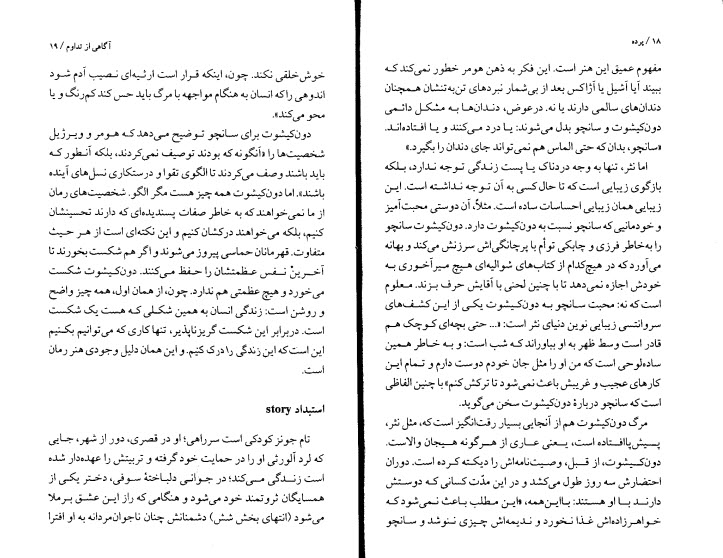 ۱۸ / پرده
مفهوم عمیق این هنر است. این فکر به ذهن هومر خطور نمی‌کند که
ببیند آیا آشیل یا آژاکس بعد از بی‌شمار نبردهای تن‌به‌تنشان همچنان
دندان‌های سالمی دارند یا نه. درعوض، دندان‌ها به مشکل دائمی
دون‌کیشوت و سانچو بدل می‌شوند: یا درد می‌کنند و یا افتاده‌اند.
«سانچو، بدان که حتی الماس هم نمی‌تواند جای دندان را بگیرد.»
اما نثر، تنها به وجه دردناک یا پست زندگی توجه ندارد، بلکه
بازگوی زیبایی است که تا حال کسی به آن توجه نداشته است. این
زیبایی همان زیبایی احساسات ساده است. مثلاً، آن دوستی محبت‌آمیز
و خودمانیی که سانچو نسبت به دون‌کیشوت دارد. دون‌کیشوت سانچو
را به‌خاطر فرزی و چابکی توأم با پرچانگی‌اش سرزنش می‌کند و بهانه
می‌آورد که در هیچ‌کدام از کتاب‌های شوالیه‌ای هیچ میرآخوری به
خودش اجازه نمی‌دهد تا با چنین لحنی با آقایش حرف بزند. معلوم
است که نه: محبت سانچو به دون‌کیشوت یکی از این کشف‌های
سروانتسی زیبایی نوین دنیای نثر است: «... حتی بچه‌ای کوچک هم
قادر است وسط ظهر به او بباوراند که شب است: و به خاطر همین
ساده‌لوحی است که من او را مثل جان خودم دوست دارم و تمام این
کارهای عجیب و غریبش باعث نمی‌شود تا ترکش کنم» با چنین الفاظی
است که سانچو دربارهٔ دون‌کیشوت سخن می‌گوید.
مرگ دون‌کیشوت هم از آنجایی بسیار رقت‌انگیز است که، مثل نثر،
پیش‌پاافتاده است، یعنی عاری از هرگونه هیجان والاست.
دون‌کیشوت، از قبل، وصیت‌نامه‌اش را دیکته کرده است. دوران
احتضارش سه روز طول می‌کشد و در این مدّت کسانی که دوستش
دارند بـا او هستند: بااین‌همه، «این مطلب باعث نمی‌شود که
خواهرزاده‌اش غذا نخورد و ندیمه‌اش چیزی ننوشد و سانچو
آگاهی از تداوم / ۱۹
خوش‌خلقی نکند. چون، اینکه قرار است ارثیه‌ای نصیب آدم شود
اندوهی را که انسان به هنگام مواجهه با مرگ باید حس کند کم‌رنگ و یا
محو می‌کند».
دون‌کیشوت برای سانچو توضیح می‌دهد که هومر و ویرژیل
شخصیت‌ها را «آنگونه که بودند توصیف نمی‌کردند، بلکه آنطور که
باید باشند وصف می‌کردند تا الگوی تقوا و درستکاری نسل‌های آینده
باشند». اما دون‌کیشوت همه چیز هست مگر الگو. شخصیت‌های رمان
از ما نمی‌خواهند که به خاطر صفات پسندیده‌ای که دارند تحسینشان
کنیم، بلکه می‌خواهند درکشان کنیم و این نکته‌ای است از هر حیث
متفاوت. قهرمانان حماسی پیروز می‌شوند و اگر هم شکست بخورند تا
آخرینْ نفس عظمتشان را حفظ می‌کنند. دون‌کیشوت شکست
می‌خورد و هیچ عظمتی هم ندارد. چون، از همان اول، همه چیز واضح
و روشن است: زندگی انسان به همین شکلی که هست یک شکست
است. دربرابر این شکست گریزناپذیر، تنها کاری که می‌توانیم بکنیم
این است که این زندگی را درک کنیم. و این همان دلیل وجودی هنر رمان
است.
استبداد story
تام جونز کودکی است سرراهی؛ او در قصری، دور از شهر، جایی
که لرد آلورثی او را در حمایت خود گرفته و تربیتش را عهده‌دار شده
است زندگی می‌کند؛ در جوانی دلباختهٔ سوفی، دختر یکی از
همسایگان ثروتمند خود می‌شود و هنگامی که راز این عشق برملا
می‌شود (انتهای بخش شش) دشمنانش چنان ناجوان‌مردانه به او افترا